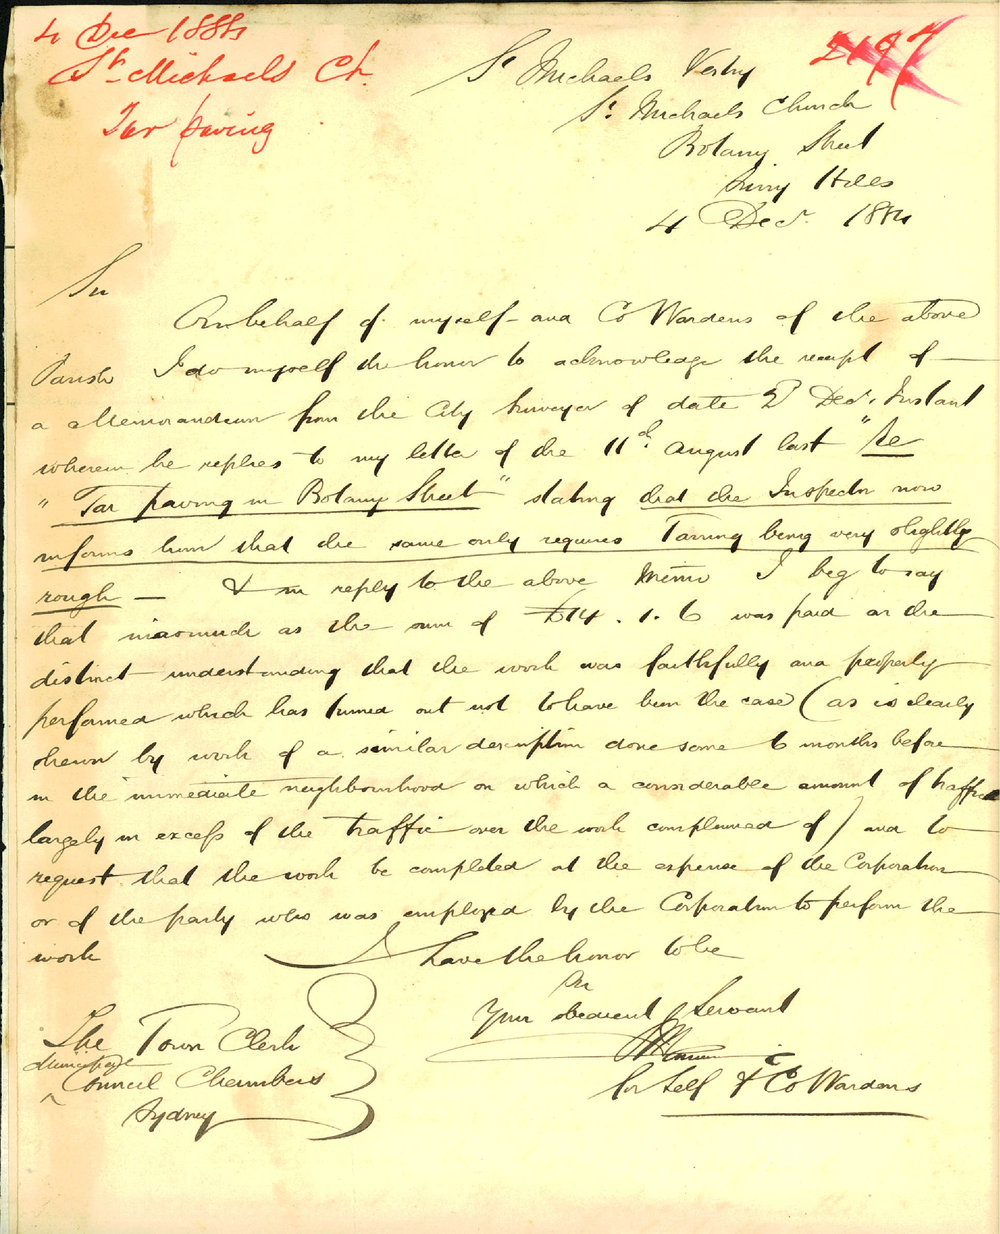 4 Dec 1884
St Michaels Ch.
Tar paving
2197
St Michaels Vestry
St. Michaels Church
Botany Street
Surry Hills
4 Decr. 1884
Sir
On behalf of myself and Co Wardens of the above
Parish I do myself the honor to acknowledge the receipt of
a Memorandum from the City Surveyor of date 2d Decr. Instant
wherein he replies to my letter of the 11th August last "Re
"Tar paving in Botany Street" stating that the Inspector now
informs him that the same only requires Tarring being very slightly
rough — & in reply to the above Memo I beg to say
that inasmuch as the sum of £14.1.6 was paid on the
distinct understanding that the work was faithfully and properly
performed which has turned out not to have been the case (as is clearly
shewn by work of a similar description done some 6 months before
in the immediate neighbourhood on which a considerable amount of traffic
largely in excess of the traffic over the work complained of) and to
request that the work be completed at the expense of the Corporation
or of the party who was employed by the Corporation to perform the
work
I have the honor to be
Sir
Your obedient Servant
for Self & Co Wardens
The Town Clerk
Municipal
Council Chambers
Sydney